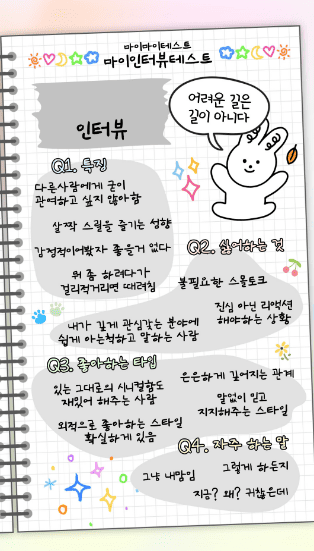 마이마이테스트
마이인터뷰테스트
어려운 길은
길이 아니다
인터뷰
Q1. 특징
다른사람에게 굳이
관여하고 싶지 않아함
살짝 스릴을 즐기는 성향
감정적이어봤자 좋을거 없다
뭐 좀 하려다가
걸리적거리면 때려침
Q2. 싫어하는 것
불필요한 스몰토크
진심 아닌 리액션
해야하는 상황
내가 깊게 관심갖는 분야에
쉽게 아는척하고 말하는 사람
Q3. 좋아하는 타입
있는 그대로의 시니컬함도
재밌어 해주는 사람
은은하게 깊어지는 관계
말없이 믿고
지지해주는 스타일
외적으로 좋아하는 스타일
확실하게 있음
Q4. 자주 하는 말
그냥 내맘임
그렇게 하든지
지금? 왜? 귀찮은데